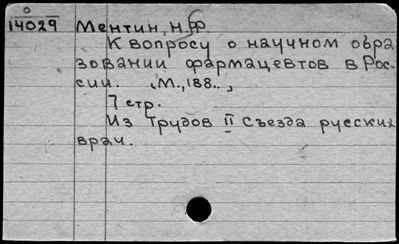 0
14029 Ментин, Н.Ф.
К вопросу о научном обра
зовании фармацевтов в Рос-
сии. М., 188.. ,
7 стр.
Из Трудов II Съезда русских
врач.